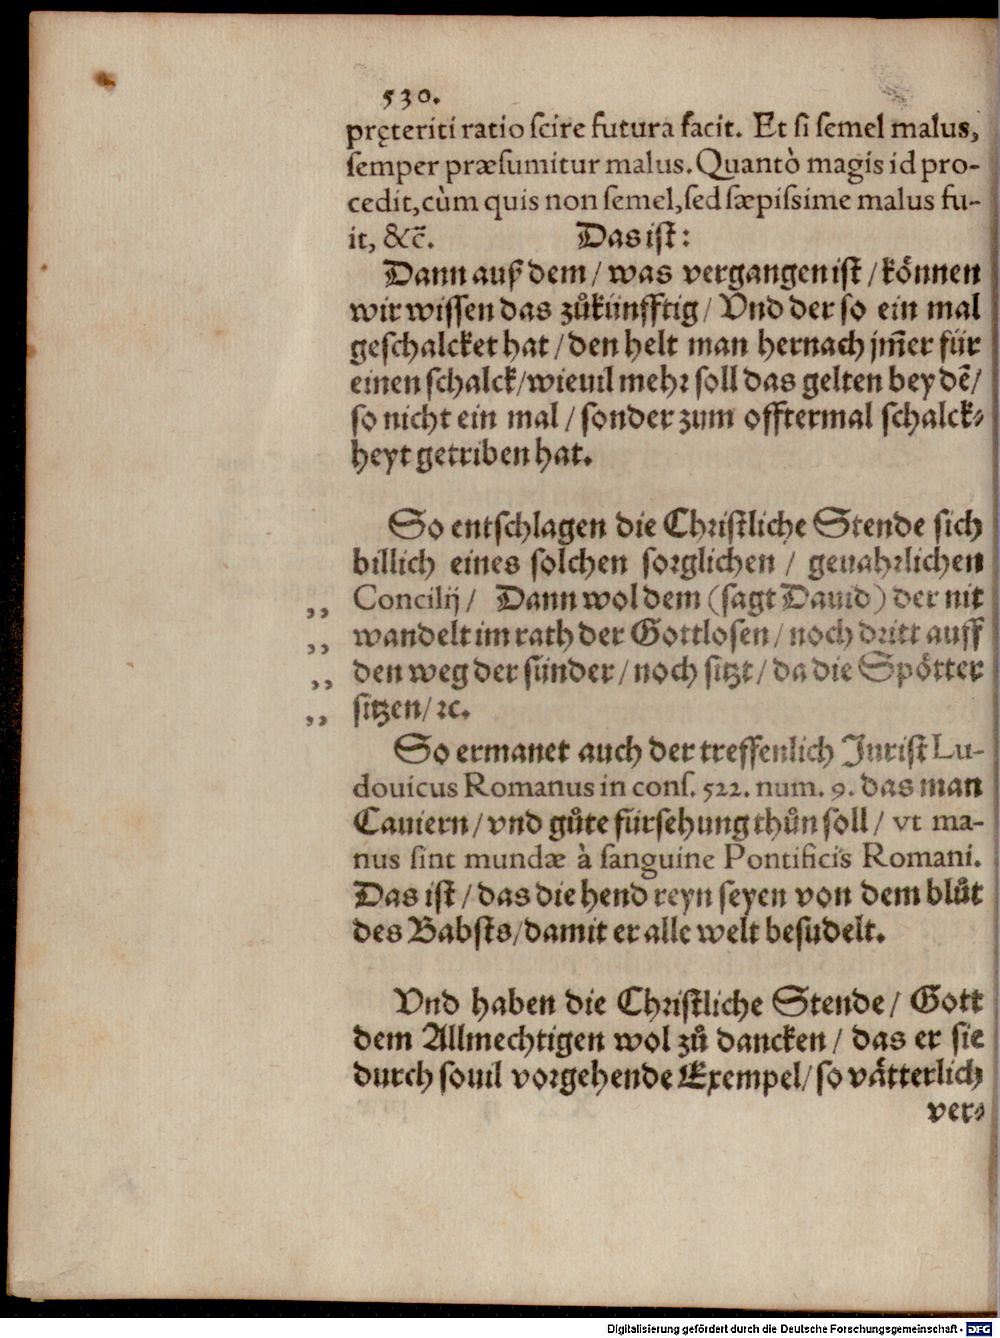 530.
pręteriti ratio scire futura facit. Et si semel malus,
semper præsumitur malus. Quantò magis id pro-
cedit, cùm quis non semel, sed sæpissime malus fu-
it, &c̃. Das ist:
Dann auß dem / was vergangen ist / können
wir wissen das zůkünfftig / Vnd der so ein mal
geschalcket hat / den helt man hernach jm̃er für
einen schalck / wieuil mehr soll das gelten bey dẽ /
so nicht ein mal / sonder zum offtermal schalck-
heyt getriben hat.
So entschlagen die Christliche Stende sich
billich eines solchen sorglichen / geuahrlichen
„ Concilij / Dann wol dem (sagt Dauid) der nit
„ wandelt im rath der Gottlosen / noch dritt auff
„ den weg der sünder / noch sitzt / da die Spötter
„ sitzen / ꝛc.
So ermanet auch der treffenlich Jurist Lu-
douicus Romanus in cons. 522. num. 9. das man
Cauiern / vnd gůte fürsehung thůn soll / vt ma-
nus sint mundæ à sanguine Pontificis Romani.
Das ist / das die hend reyn seyen von dem blůt
des Babsts / damit er alle welt besudelt.
Vnd haben die Christliche Stende / Gott
dem Allmechtigen wol zů dancken / das er sie
durch souil vorgehende Exempel / so vätterlich
ver-
Digitalisierung gefördert durch die Deutsche Forschungsgemeinschaft - DFG